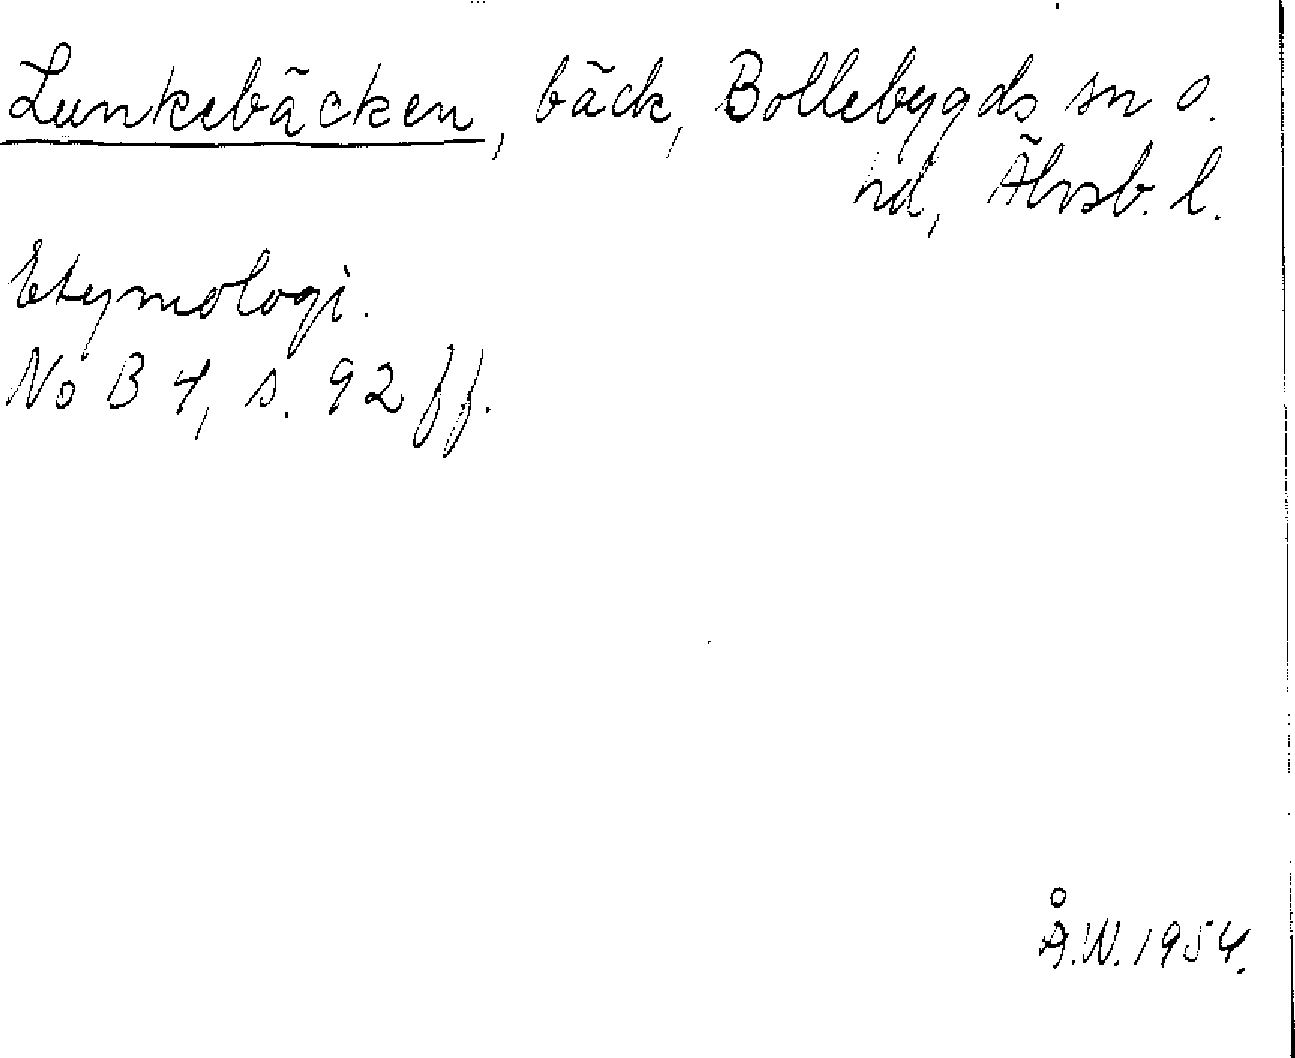 Lunkebäcken, bäck, Bollebygds sn o.
hd, Älvsb. l.
Etymologi.
NoB 4, s. 92 ff.
Å.W. 1954.